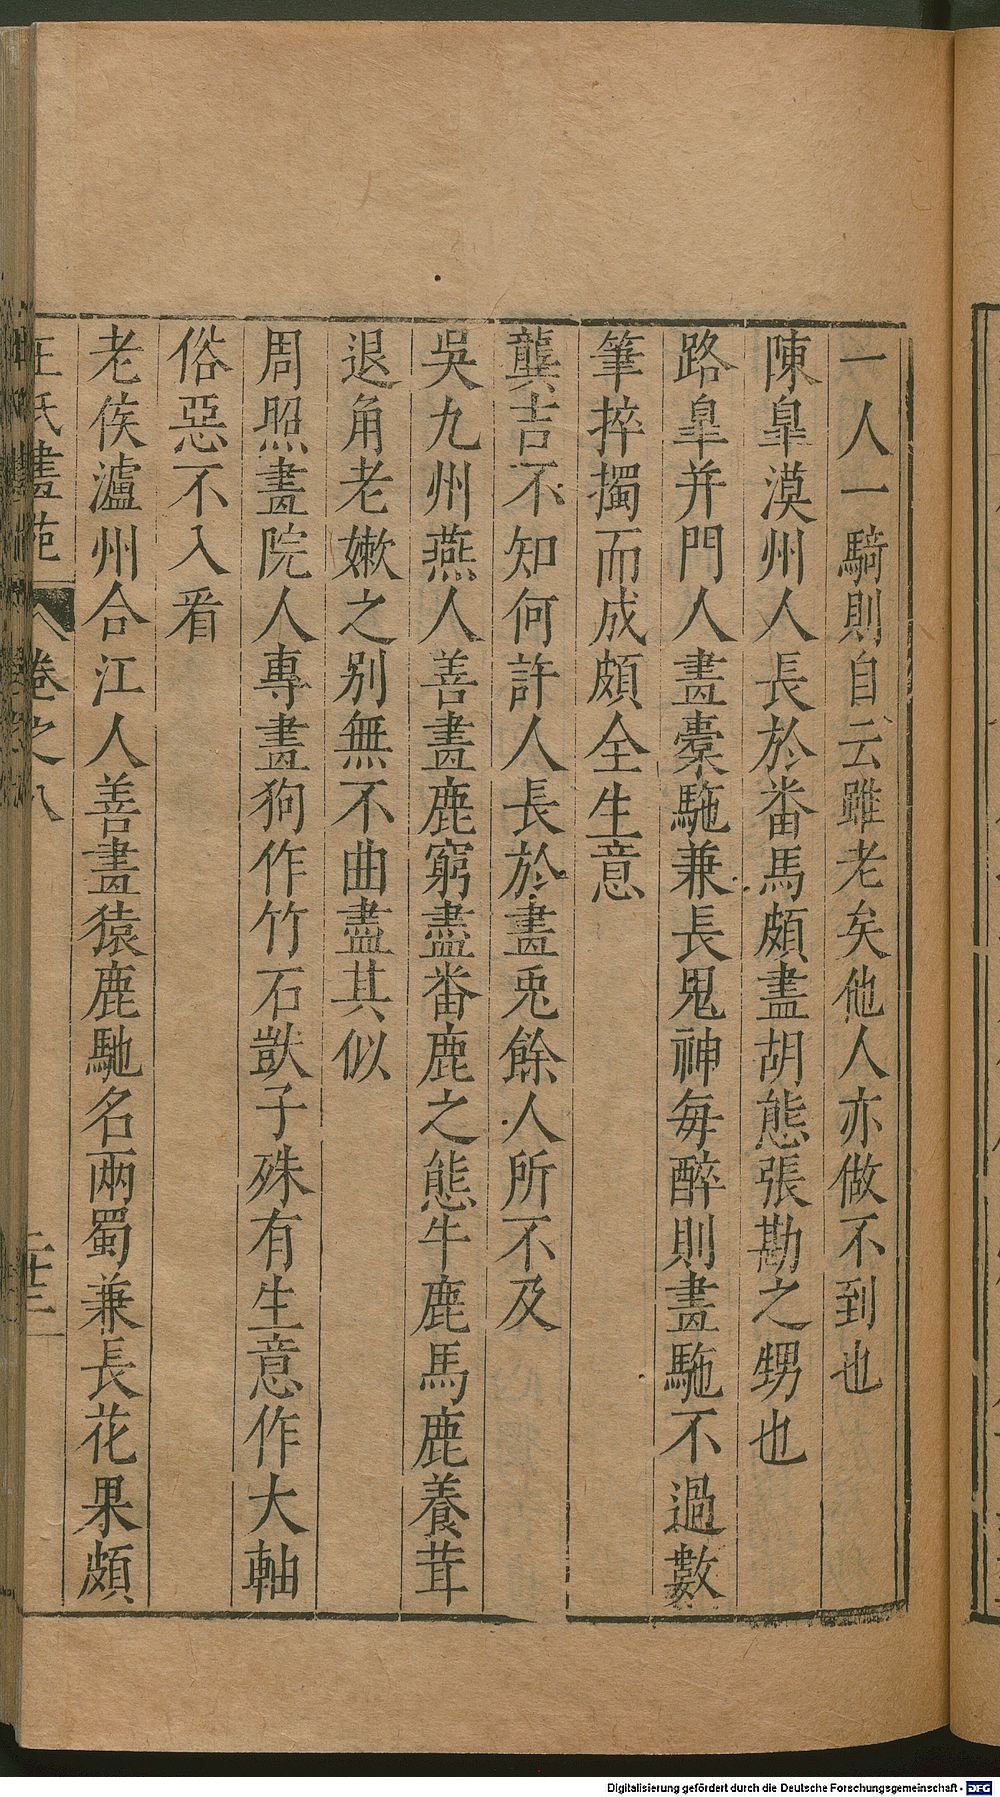 一人一騎則自云雖老矣他人亦做不到也
陳皐漠州人長於畨馬頗盡胡態張勘之甥也
路皐并門人畫橐駞兼長鬼神每醉則畫駞不過數
筆捽擉而成頗全生意
龔吉不知何許人長於畫兎餘人所不及
吳九州燕人善畫鹿窮盡畨鹿之態牛鹿馬鹿養茸
退角老嫰之别無不曲盡其似
周照畫院人專畫狗作竹石獃子殊有生意作大軸
俗惡不入㸔
老侯瀘州合江人善畫猿鹿馳名兩蜀兼長花果頗
王氏畫苑 卷之八 二十三
Digitalisierung gefördert durch die Deutsche Forschungsgemeinschaft - DFG